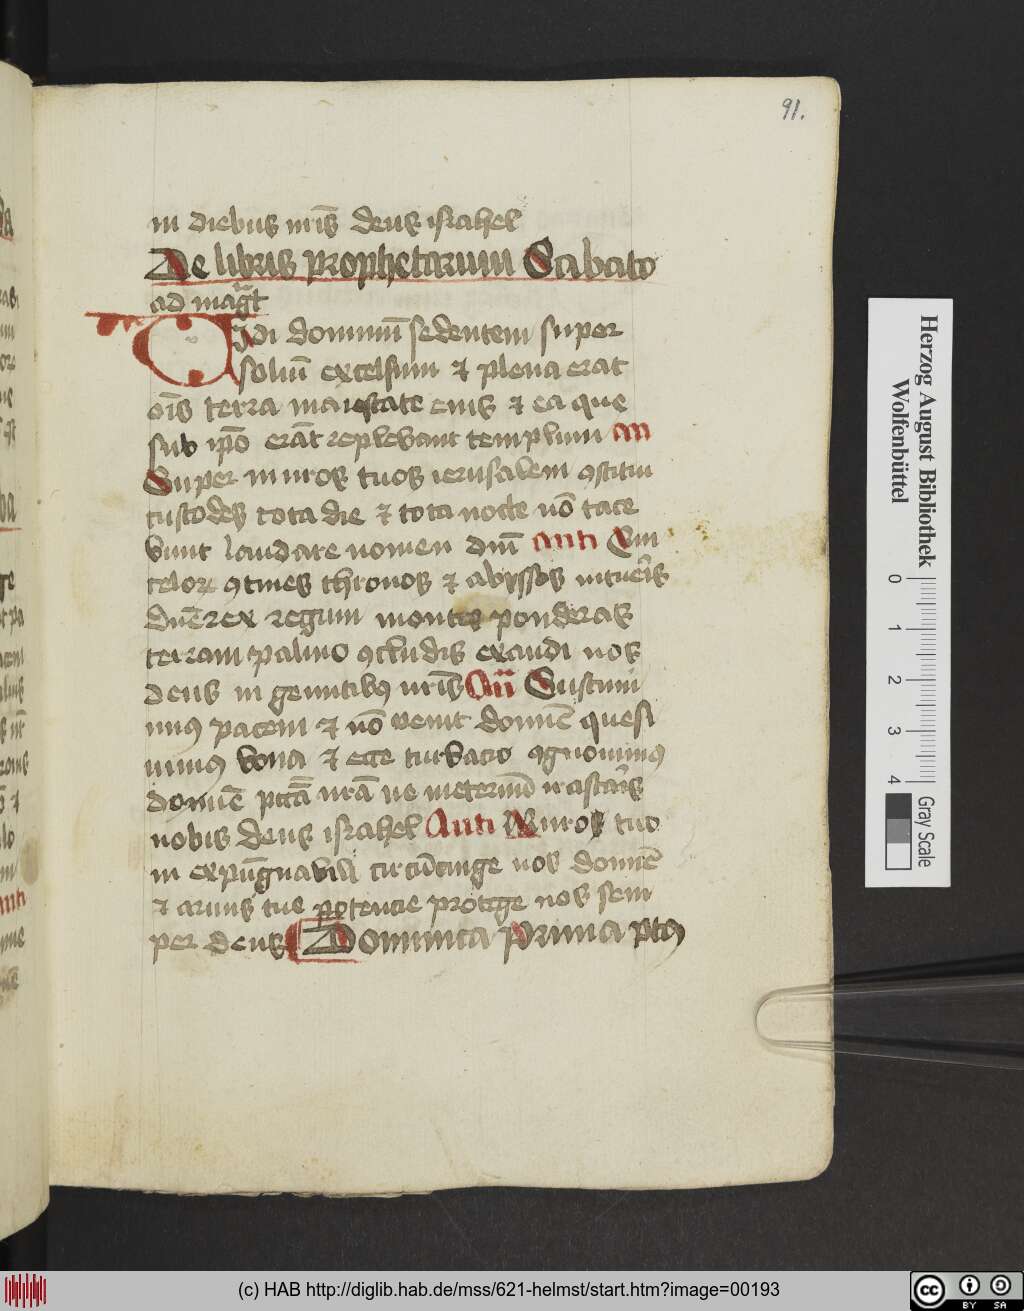 91.
in diebus nr̄is deus israhel
De libris prophetarum Sabato
ad mag̅t
Vidi dominū sedentem super
soliū excelsum et plena erat
oīs terra maiestate eius et ea que
sub ip̄o erāt replebant templum an
Super muros tuos ierusalem ꝯstitui
custodes tota die et tota nocte nō tace
bunt laudare nomen dm̄ anti Qui
celoꝝ ꝯtines thronos et abyssos intueris
dn̄e rex regum montes ponderas
terram palmo ꝯcludis exaudi nos
deus in gemitibꝰ nr̄is An̄ Sustinui
mus pacem et nō venit domīe quesi
uimꝰ bona et ecce turbacio ꝯgnouimꝰ
domīe pccā nr̄a ne ineternū irascaris
nobis deus israhel Anti Muros tuo
in expūgnabili circūcinge nos domīe
et armis tue potencie protege nos sem
per deus Dominica prima ptꝰ
Herzog August Bibliothek
Wolfenbüttel
0 1 2 3 4
Gray Scale
(c) HAB http://diglib.hab.de/mss/621-helmst/start.htm?image=00193
cc BY SA